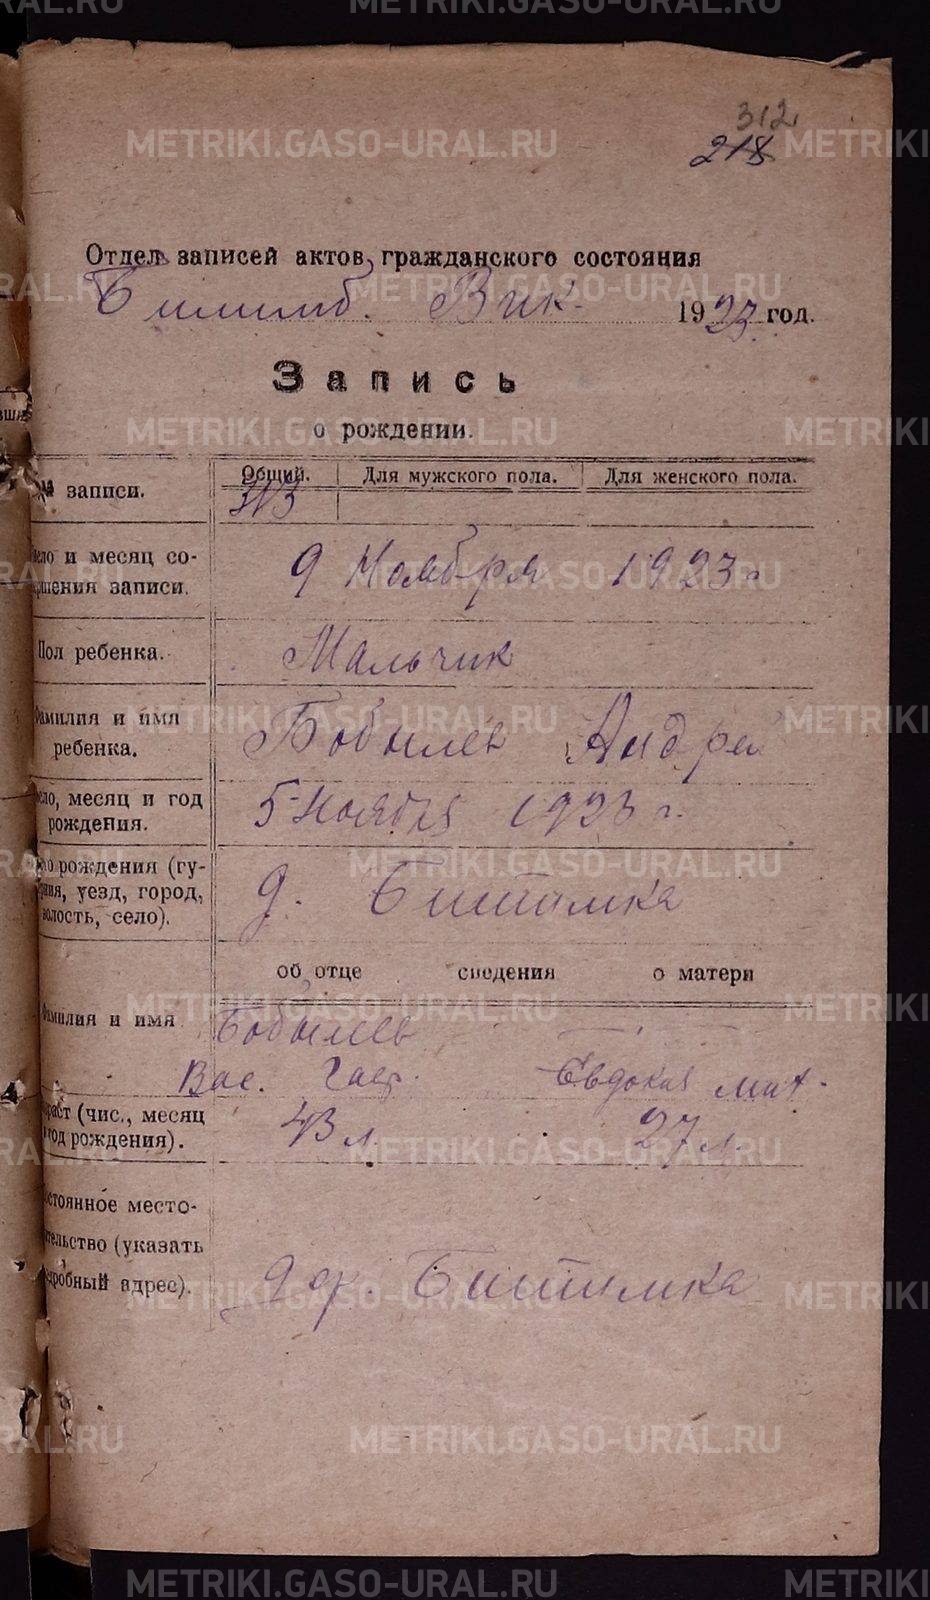 312
218
Отдел записей актов гражданского состояния
Билимб. Вик. 1923 год.
Запись
о рождении.
№ записи.
Общий. Для мужского пола. Для женского пола.
313
Число и месяц со-
вершения записи.
9 Ноября 1923 г
Пол ребенка.
Мальчик
Фамилия и имя
ребенка.
Бобылев Андрей
Число, месяц и год
рождения.
5 Ноября 1923 г.
рождения (гу-
уезд, город,
волость, село).
д. Битимка
об отце сведения о матери
Фамилия и имя
Бобылев
Вас. Гавр. Евдокия Мат.
(чис., месяц
и год рождения).
43 л. 27 л.
место-
(указать
адрес).
Дер. Битимка
METRIKI.GASO-URAL.RU